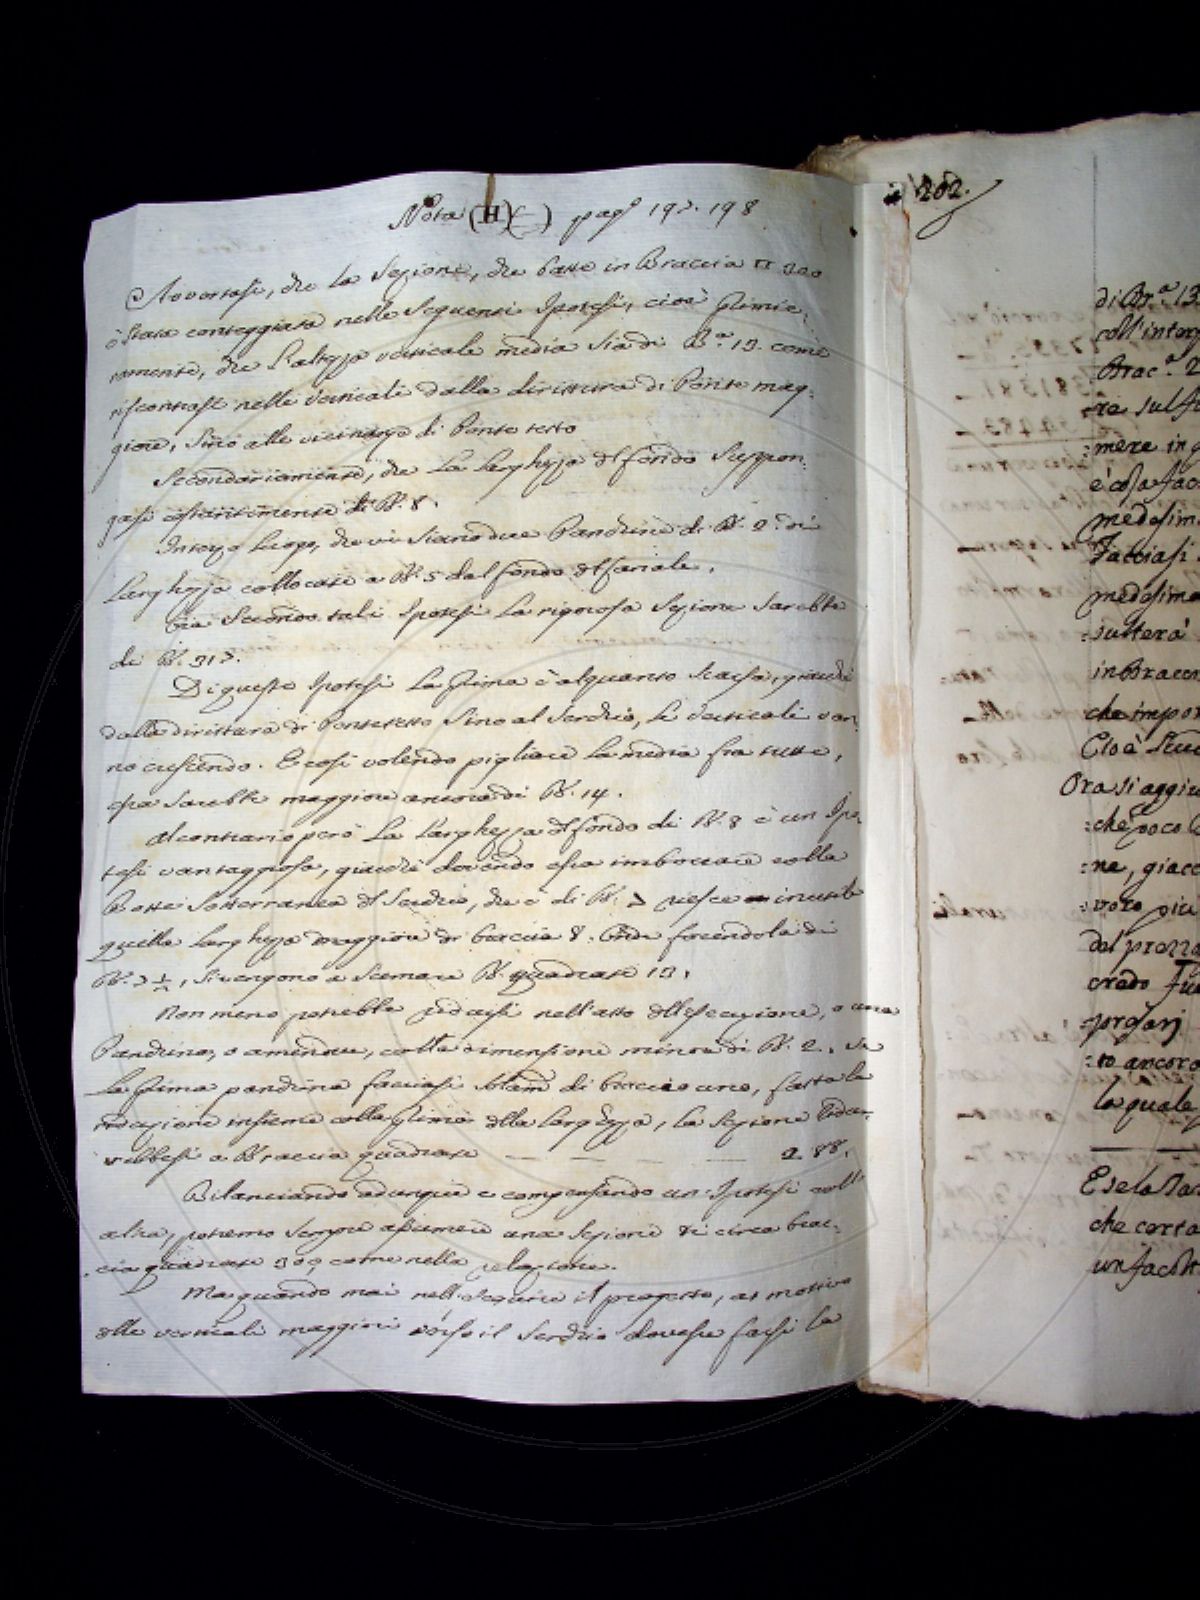 Nota (H)(—) pag.e 197. 198
Avvertasi, che la Sezione, che batte in Braccia □ 300
è stata conteggiata nelle seguenti Ipotesi, cioè Primie:
ramente, che l'altezza verticale media sia di B.a 13. come
riscontrasi nelle verticali dalla dirittura di Ponte mag:
giore, sino alle vicinanze di Ponte tetto
Secondariamente, che La larghezza del fondo Suppon:
gasi costantemente di B. 8.
In terzo Luogo, che vi siano due Panchine di B. 2. di
Larghezza collocate a B. 5 dal fondo del Canale.
Già Secondo tali Ipotesi La rigorosa Sezione Sarebbe
di B. 317.
Di queste Ipotesi La Prima è alquanto Scarsa, giacchè
dalla dirittura di Pontetetto Sino al Serchio, le Verticali van:
no crescendo. E così volendo pigliare la media fra tutte,
essa Sarebbe maggiore ancora di B. 14.
Al contrario però La Larghezza del fondo di B. 8 è un Ipo:
tesi vantaggiosa, giacchè dovendo essa imboccare colla
Botte Sotterranea del Serchio, che è di B. 7 riesce inutile
quella larghezza maggiore di braccia 8. Onde facendola di
B. 7 ½, si vengono a Scemare B. quadrate 13.
Non meno potrebbe ridursi nell'atto dell'esecuzione, o una
Panchina, o amendue, colla dimensione minore di B. 2. Se
La Prima panchina facciasi solam. di braccio uno, fatta la
riduzione insieme colla Prima della larghezza, la Sezione ridur:
rebbesi a Braccia quadrate — — — — 288.
Bilanciando adunque e compensando un Ipotesi coll'
altra, potremo sempre assumere una Sezione di circa brac:
cia quadrate 300, come nella relazione.
Ma quando mai nell'eseguire il progetto, at motivo
delle verticali maggiori verso il Serchio dovesse farsi la
202.
di Br.a 13
coll'inter
Brac.a 2
:re sul fi
:mere in q
è cosa fac
medesim
Facciasi
medesima
:sulterà
in Bracci
che impor
Cioè
Ora si aggiu
:che poco
:ne, giacc
:voro più
del prezz
credo
:prgarj
:to ancora
la quale
E se la
che certa
un facil